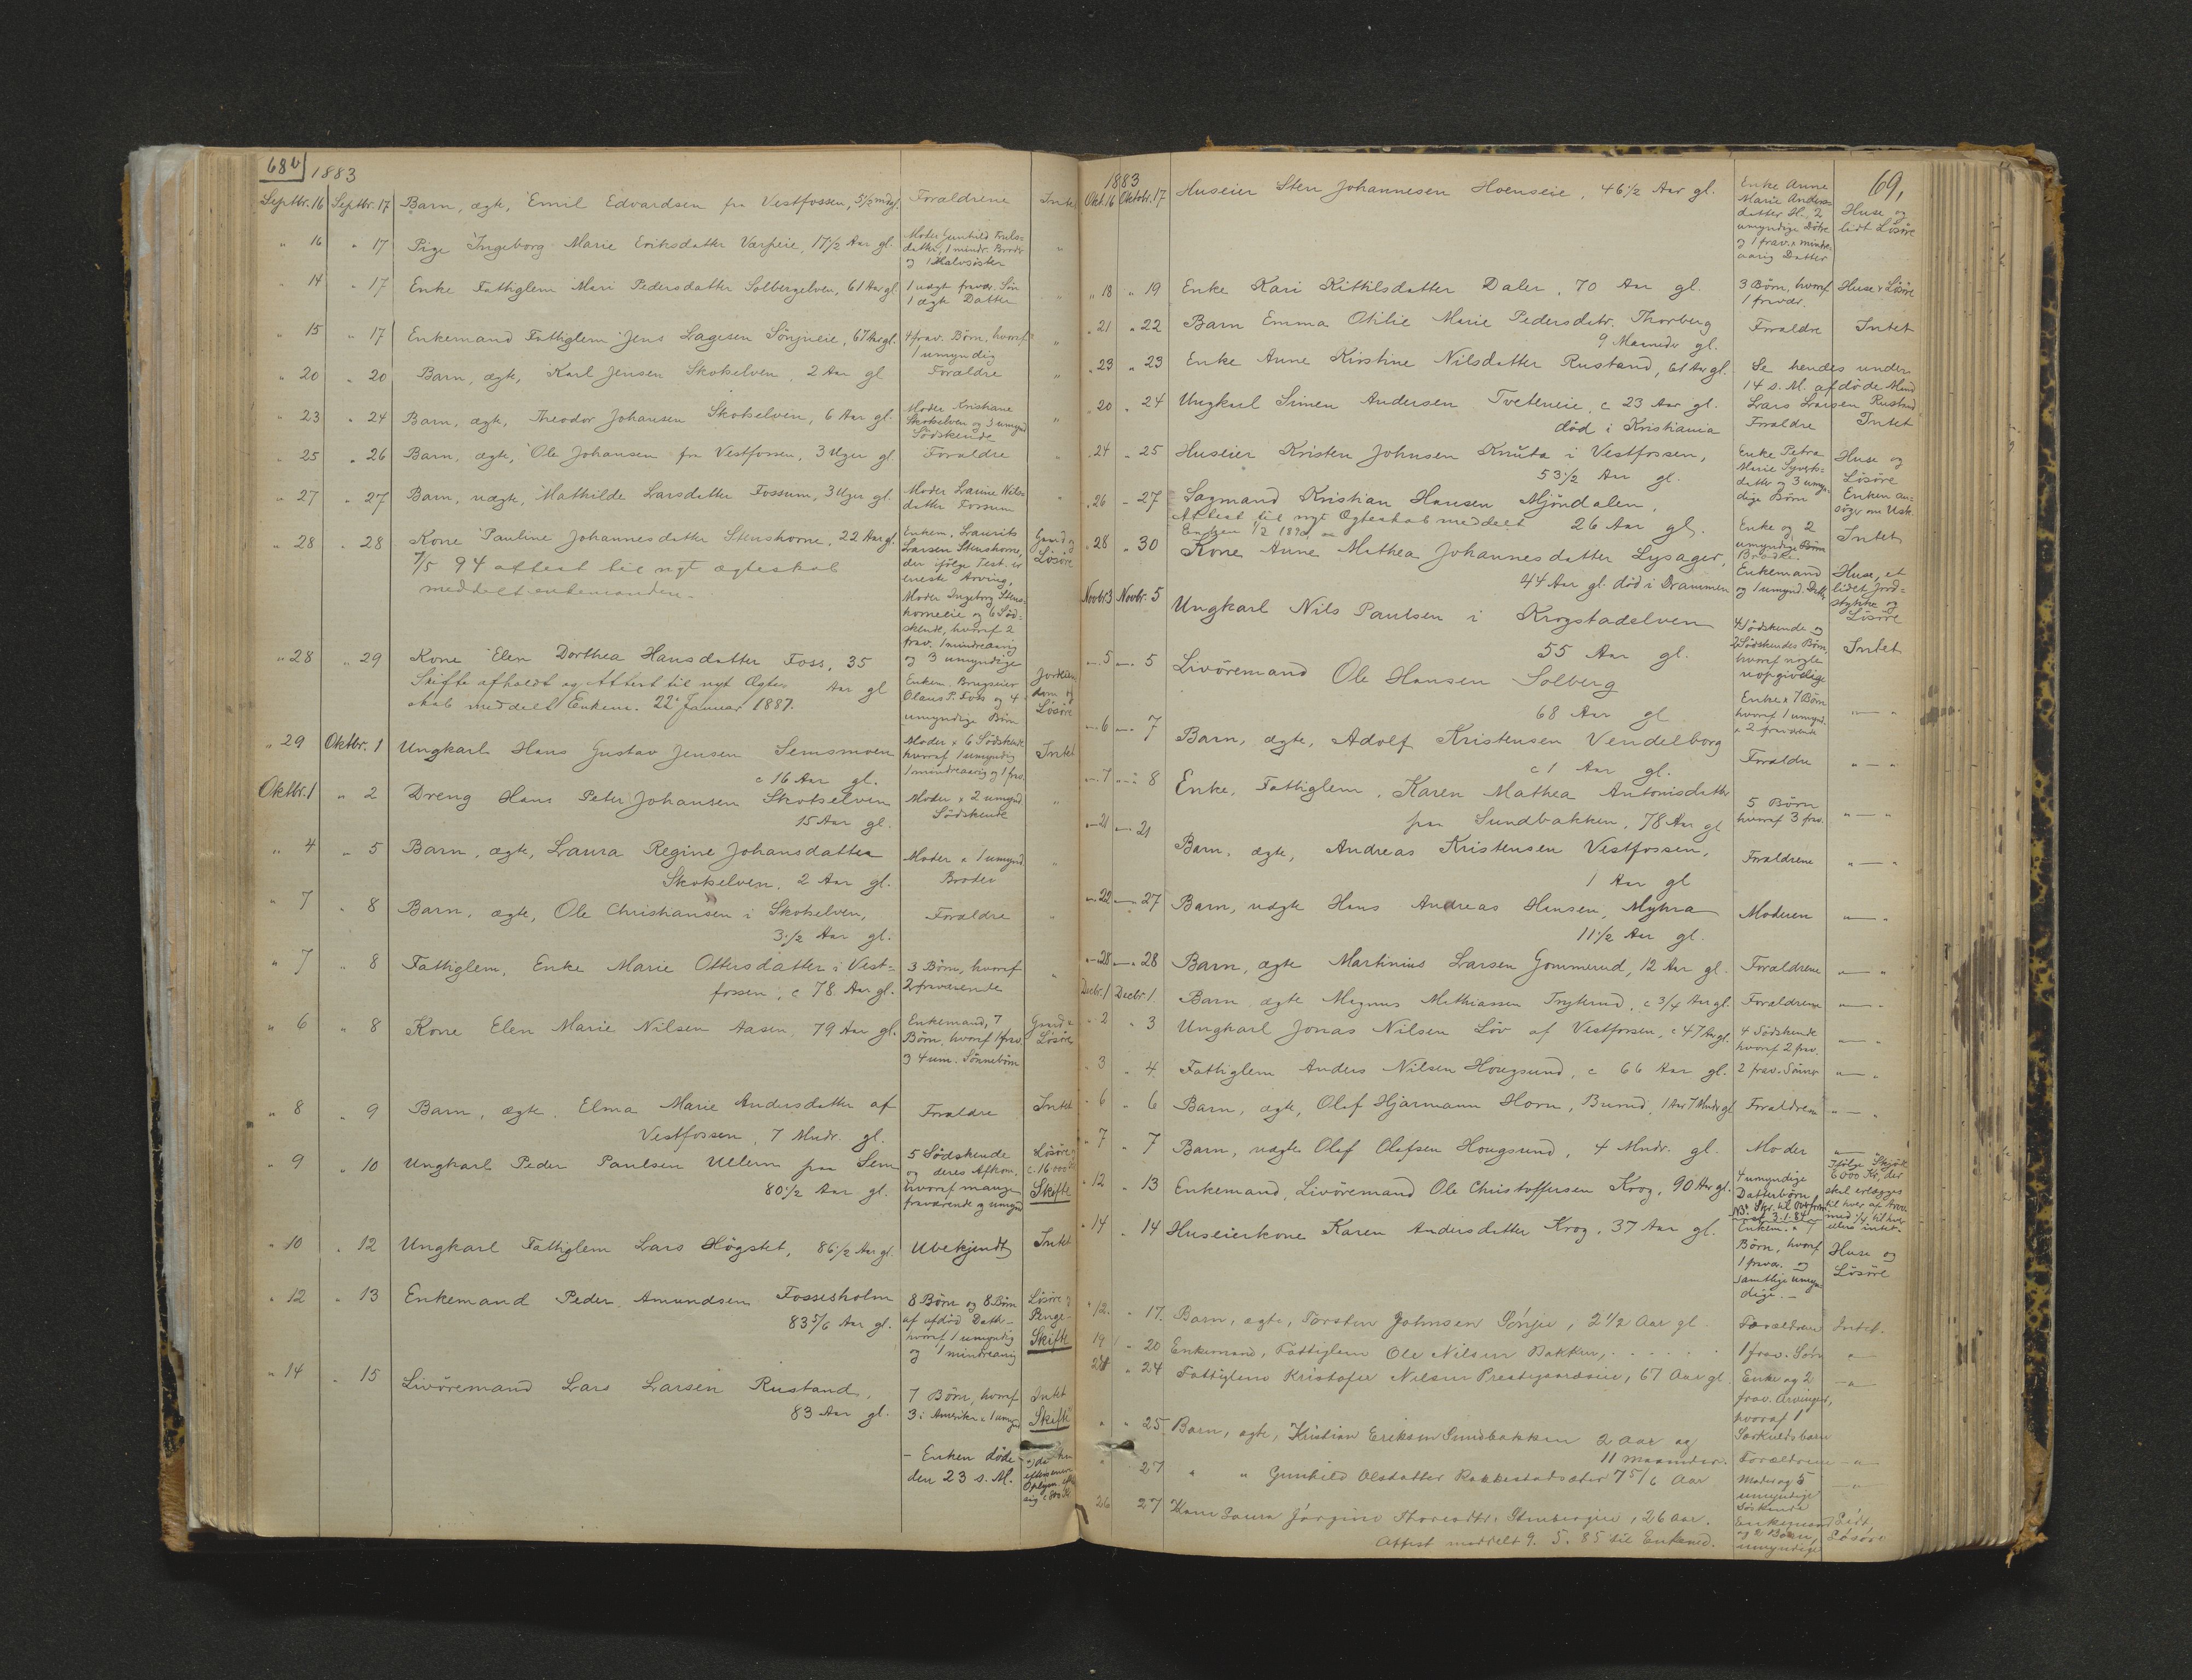 68b
1883
Septbr. 16 Septbr. 17 Barn, ægte, Emil Edvardsen fra Vestfossen, 5½ md gl. Forældrene Intet
" 16 " 17 Pige Ingeborg Marie Eriksdatter Varpeie, 17½ Aar gl. Moder Gunhild Truls=
datter, 1 mindr. Broder "
og 1 Halvsøster
" 14 " 17 Enke Fattiglem Mari Pedersdatter Solbergelven, 61 Aar gl 1 uægt fravær. Søn "
1 ægte Datter
" 15 " 17 Enkemand Fattiglem Jens Lagesen Sönjueie, 67 Aar gl. 4 frav. Börn, hvoraf "
1 umyndig
" 20 " 20 Barn, ægte, Karl Jensen Skotselven, 2 Aar gl Forældre "
" 23 " 24 Barn, ægte, Theodor Johansen Skotselven, 6 Aar gl. Moder Kristiane
Skotselven og 3 umynd "
Södskende
" 25 " 26 Barn, ægte, Ole Johansen fra Vestfossen, 3 Uger gl. Forældre "
" 27 " 27 Barn, uægte, Mathilde Larsdatter Fossum, 3 Uger gl. Moder Laurine Nils=
datter Fossum "
" 28 " 28 Kone Pauline Johannesdatter Stenshorne, 22 Aar gl. Enkem. Laurits Gaard og
7/5 94 attest til nyt ægteskab Larsen Stenshorne, Lösöre
meddelt enkemanden. der ifölge Test. er
eneste Arving,
Moder Ingeborg Stens=
horneeie og 6 Söd=
skende, hvoraf 2
frav. 1 mindreaarig
og 3 umyndige
" 28 " 29 Kone Elen Dorthea Hansdatter Foss, 35
Aar gl
Skifte afholdt og Attest til nyt Ægte=
skab meddelt Enkem. 22 Januar 1887.
Enkem. Brugseier
Olaus P. Foss og 4
umyndige Börn
Jordeien
dom og
Lösöre
" 29 Oktbr. 1 Ungkarl Hans Gustav Jensen Semsmoen Moder & 6 Södskende Intet
c 16 Aar gl. hvoraf 1 umyndig
1 mindreaarig og 1 frav.
Oktbr. 1 " 2 Dreng Hans Peter Johansen Skotselven Moder & 2 umynd "
15 Aar gl. Södskende
" 4 " 5 Barn, ægte, Laura Regine Johansdatter Moder & 1 umynd "
Skotselven, 2 Aar gl. Broder
" 7 " 8 Barn, ægte, Ole Christiansen i Skotselven, Forældre "
3½ Aar gl.
" 7 " 8 Fattiglem, Enke Marie Ottersdatter i Vest= 3 Börn, hvoraf "
fossen, c 78 Aar gl. 2 fraværende
" 6 " 8 Kone Elen Marie Nilsen Aasen, 79 Aar gl. Enkemand, 7 Gaard &
Börn, hvoraf 1 frav. Lösöre
3 4 um. Sönnebörn
" 8 " 9 Barn, ægte, Elma Marie Andersdatter af Forældre Intet
Vestfossen, 7 Mndr. gl.
" 9 " 10 Ungkarl Peder Paulsen Ullern paa Sem 5 Södskende Lösöre
80½ Aar gl. og deres Afkom, c. 16000
hvoraf mange Skifte
fraværende og umynd
" 10 " 12 Ungkarl Fattiglem Lars Högstet, 86½ Aar gl. Ubekjendt Intet
" 12 " 13 Enkemand Peder Amundsen Fossesholm 8 Börn og 8 Börn Lösöre &
83 5/6 Aar gl. af afdöd Datter Penge
hvoraf 1 umyndig Skifte
og 1 mindreaarig
" 14 " 15 Livöremand Lars Larsen Rustand, 7 Börn, hvoraf Intet
83 Aar gl. 3 i Amerika & 1 umynd Skifte
- Enken döde
den 23 s. M.
1883 69,
Okt. 16 Oktobr. 17 Huseier Sten Johannesen Hoenseie, 46½ Aar gl. Enke Anne
Marie Anders=
datter H., 2 Huse og
umyndige Dötre lidt Lösöre
og 1 frav. & mindre=
aarig Datter
" 18 " 19 Enke Kari Kittilsdatter Daler, 70 Aar gl. 3 Börn, hvoraf Huse & Lösöre
1 fravær.
" 21 " 22 Barn Emma Otilie Marie Pedersdatr. Thorberg Forældre Intet
9 Maaneder gl.
" 23 " 23 Enke Anne Kirstine Nilsdatter Rustand, 61 Aar gl. Se hendes under
14 s. M. afdöde Mand
Lars Larsen Rustand
" 20 " 24 Ungkarl Simen Andersen Tveteneie, c 23 Aar gl. Forældre Intet
död i Kristiania
" 24 " 25 Huseier Kristen Johnsen Knuta i Vestfossen, Enke Petra Huse og
53½ Aar gl. Marie Syverts= Lösöre
datter og 3 umyn= Enken an=
dige Börn söger om Usk.
" 26 " 27 Sagmand Kristian Hansen Mjöndalen, 26 Aar gl. Enke og 2 Intet
Attest til nyt Ægteskab meddelt umyndige Börn
Enken ½ 1890
" 28 " 30 Kone Anne Mathea Johannesdatter Lysager, Enkemand Huse, et
44 Aar gl. död i Drammen og 1 umynd. Datter lidet Jord=
stykke og
Lösöre
Novbr 3 Novbr. 5 Ungkarl Nils Paulsen i Krogstadelven 4 Södskende og
55 Aar gl. 2 Södskendes Börn, Intet
hvoraf nogle
uopgivelige
" 5 " 5 Livöremand Ole Hansen Solberg Enke & 7 Börn
68 Aar gl hvoraf 1 umynd. " — "
& 2 fraværende
" 6 " 7 Barn, ægte, Adolf Kristensen Vendelborg Forældre " — "
c 1 Aar gl.
" 7 " 8 Enke, Fattiglem, Karen Mathea Antonisdatter 5 Börn
paa Sundbakken, 78 Aar gl hvoraf 3 frav. " — "
" 21 " 21 Barn, ægte, Andreas Kristensen Vestfossen, Forældrene " — "
1 Aar gl
" 22 " 27 Barn, uægte Hans Andreas Hansen, Myhra Moderen " — "
11½ Aar gl.
" 28 " 28 Barn, ægte Martinius Larsen Gommerud, 12 Aar gl. Forældrene " — "
Decbr. 1 Decbr 1. Barn ægte Magnus Mathiassen Tryterud, c 3/4 Aar gl. Forældrene " — "
" 2 " 3 Ungkarl Jonas Nilsen Löv af Vestfossen, c 47 Aar gl. 4 Södskende
hvoraf 2 frav. " — "
" 3 " 4 Fattiglem Anders Nilsen Hougsund, c 66 Aar gl. 2 frav. Sönner " — "
" 6 " 6 Barn, ægte, Olaf Hjarmann Horn, Bunæd. 1 Aar 7 Mndr gl Forældrene " — "
" 7 " 7 Barn, uægte Olaf Olafsen Hougsund, 4 Mndr. gl. Moder " —
" 12 " 13 Enkemand, Livöremand Ole Christoffersen Krog, 90 Aar gl. 4 umyndige Ifölge Skjöte
Datterbörn 6000 Kr, der
skal erlægges
" 14 " 14 Huseierkone Karen Andersdatter Krog, 37 Aar gl. Enkem. & 7
Börn, hvoraf Huse og
1 fravær. og Lösöre
samtlige umyn=
dige. —
" 12. " 17. Barn, ægte, Torsten Johnsen Sönjue, 2½ Aar gl. Forældrene Intet.
19 " 20 Enkemand, Fattiglem Ole Nilsen Bakken, . . . . . 1 frav. Sön "
" 24 Fattiglem Kristofer Nilsen Prestegaardseie, 67 Aar gl. Enke og 2 — " —
frav. Arvinger,
hvoraf 1
Særkuldsbarn
" " 25 Barn, ægte, Kristian Eriksen Sundbakken 2 Aar og
11 maaneder. Forældrene — " —
" 27 " " Gunhild Olsdatter Rakkestadsæter 7 5/6 Aar Moder og 5
umyndige
Söskende
26 27 Kone Laura Jörgine Thorvaldtr. Stenbergeie, 26 Aar. Enkemand Lidt
og 2 Börn, Lösöre
umyndige
Attest meddelt 9. 5. 85 til Enkemd.